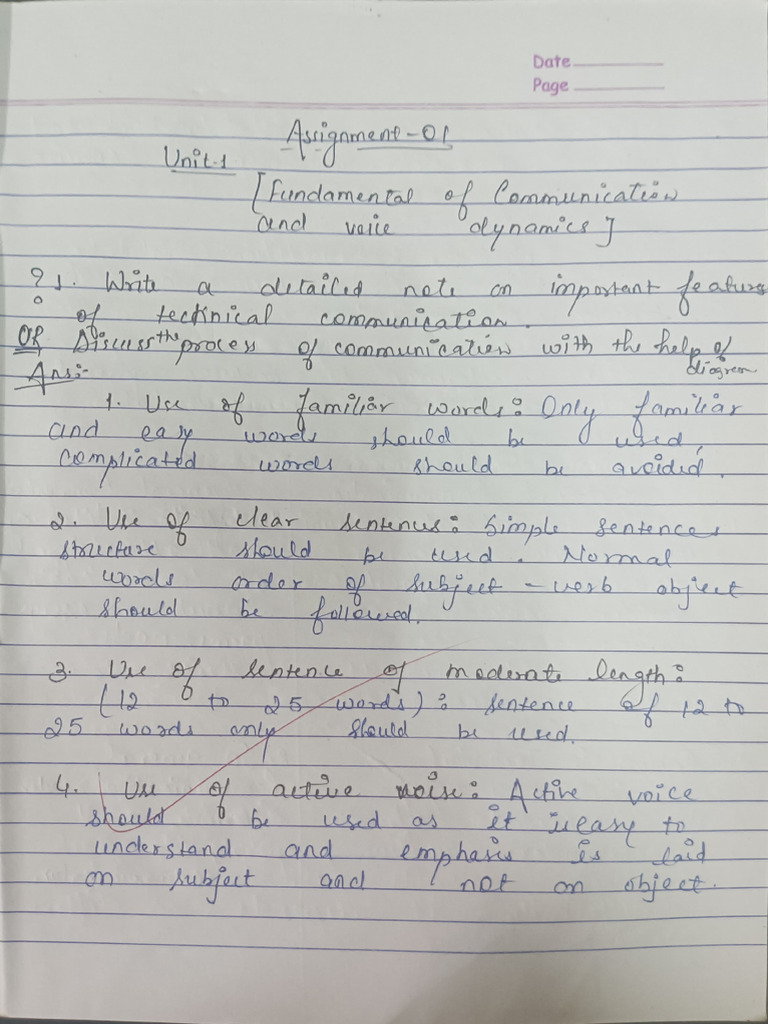 Date
Page
Assignment-01
Unit-1
[Fundamental of Communication
and voice dynamics]
? 1. Write a detailed note on important feature
of technical communication.
OR Discuss the process of communication with the help of
diagram
Ans:-
1. Use of familiar words: Only familiar
and easy words should be used,
complicated words should be avoided.
2. Use of clear sentenus: Simple sentences
structure should be used. Normal
words order of subject - verb object
should be followed.
3. Use of sentence of moderate length:
(12 to 25 words): sentence of 12 to
25 words only should be used.
4. Use of active noise: Active voice
should be used as it is easy to
understand and emphasis is laid
on subject and not on object.